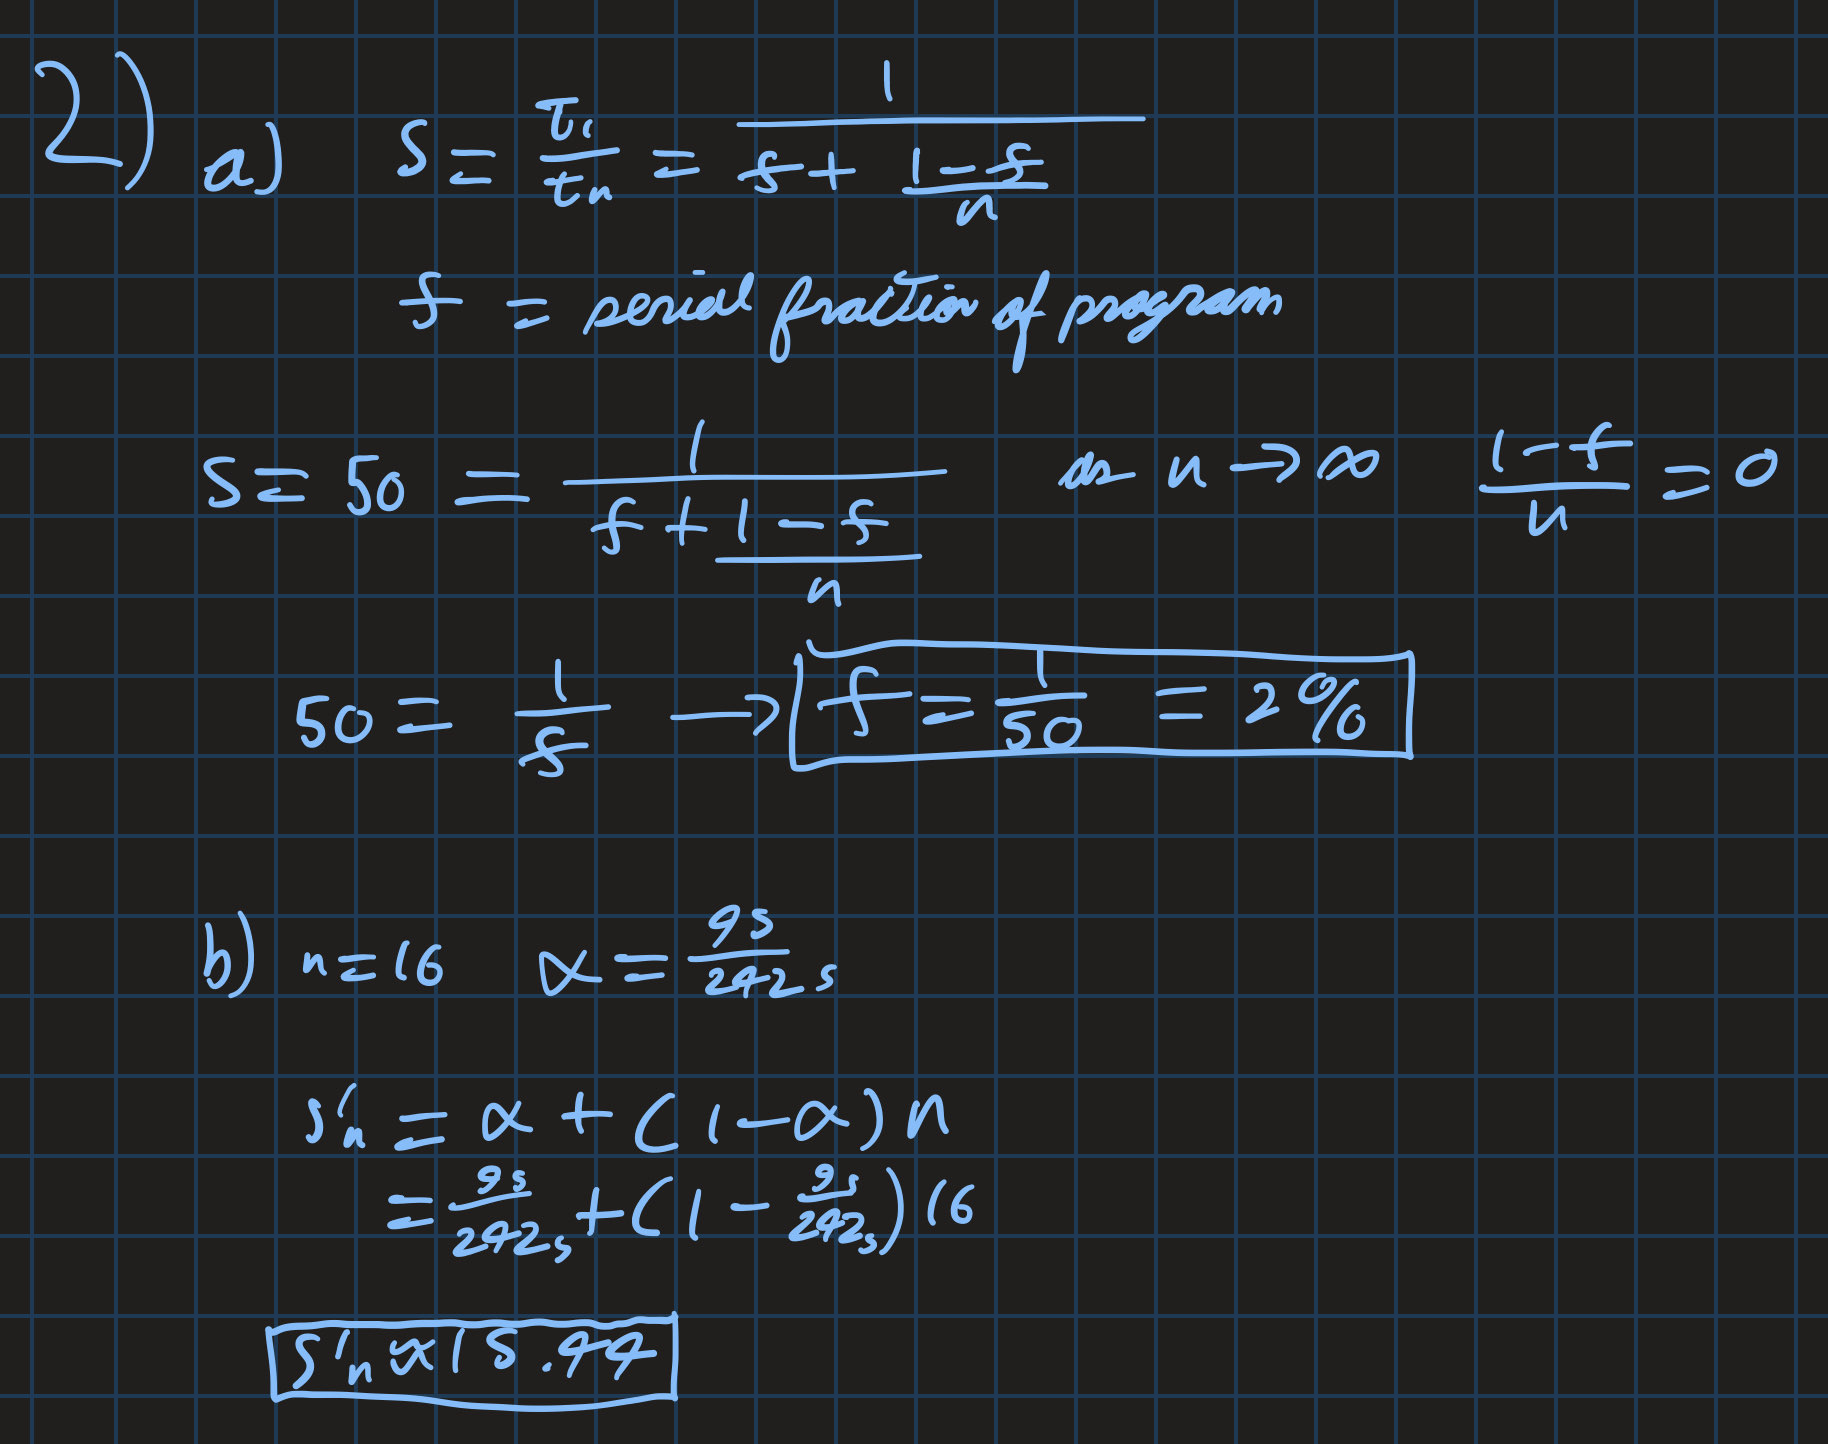 2) a) S = t₁/tₙ = 1/(f + (1-f)/n)
f = serial fraction of program
S = 50 = 1/(f + (1-f)/n) as n → ∞ (1-f)/n = 0
50 = 1/f → f = 1/50 = 2%
b) n = 16 α = 9s/242s
s'ₙ = α + (1-α)n
= 9s/242s + (1 - 9s/242s)16
S'ₙ ≈ 15.44